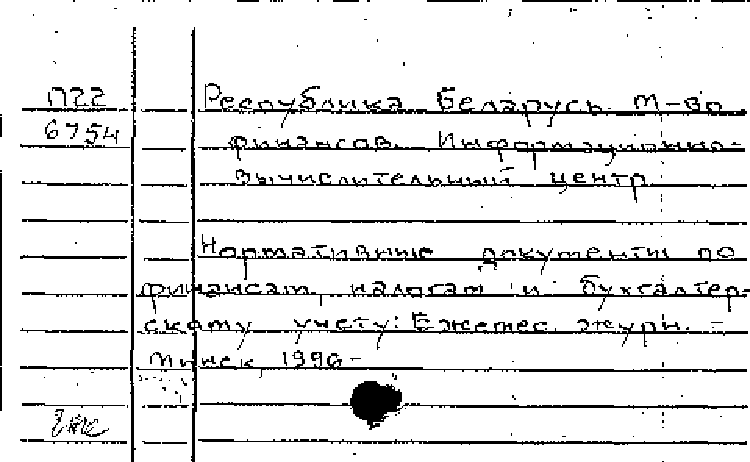 П22
6754
Республика Беларусь. М-во
финансов. Информационно-
вычислительный центр
Нормативные документы по
финансам, налогам и бухгалтер-
скому учету: Ежемес. журн. -
Минск, 1996-